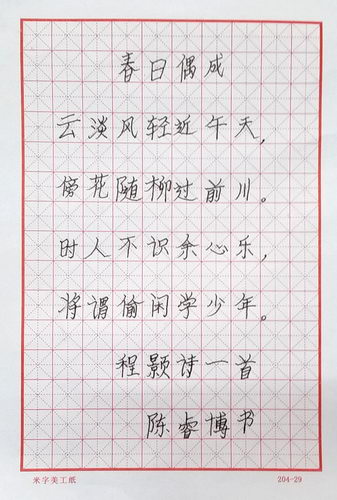 春日偶成
云淡风轻近午天，
傍花随柳过前川。
时人不识余心乐，
将谓偷闲学少年。
程颢诗一首
陈睿博书
米字美工纸 204-29